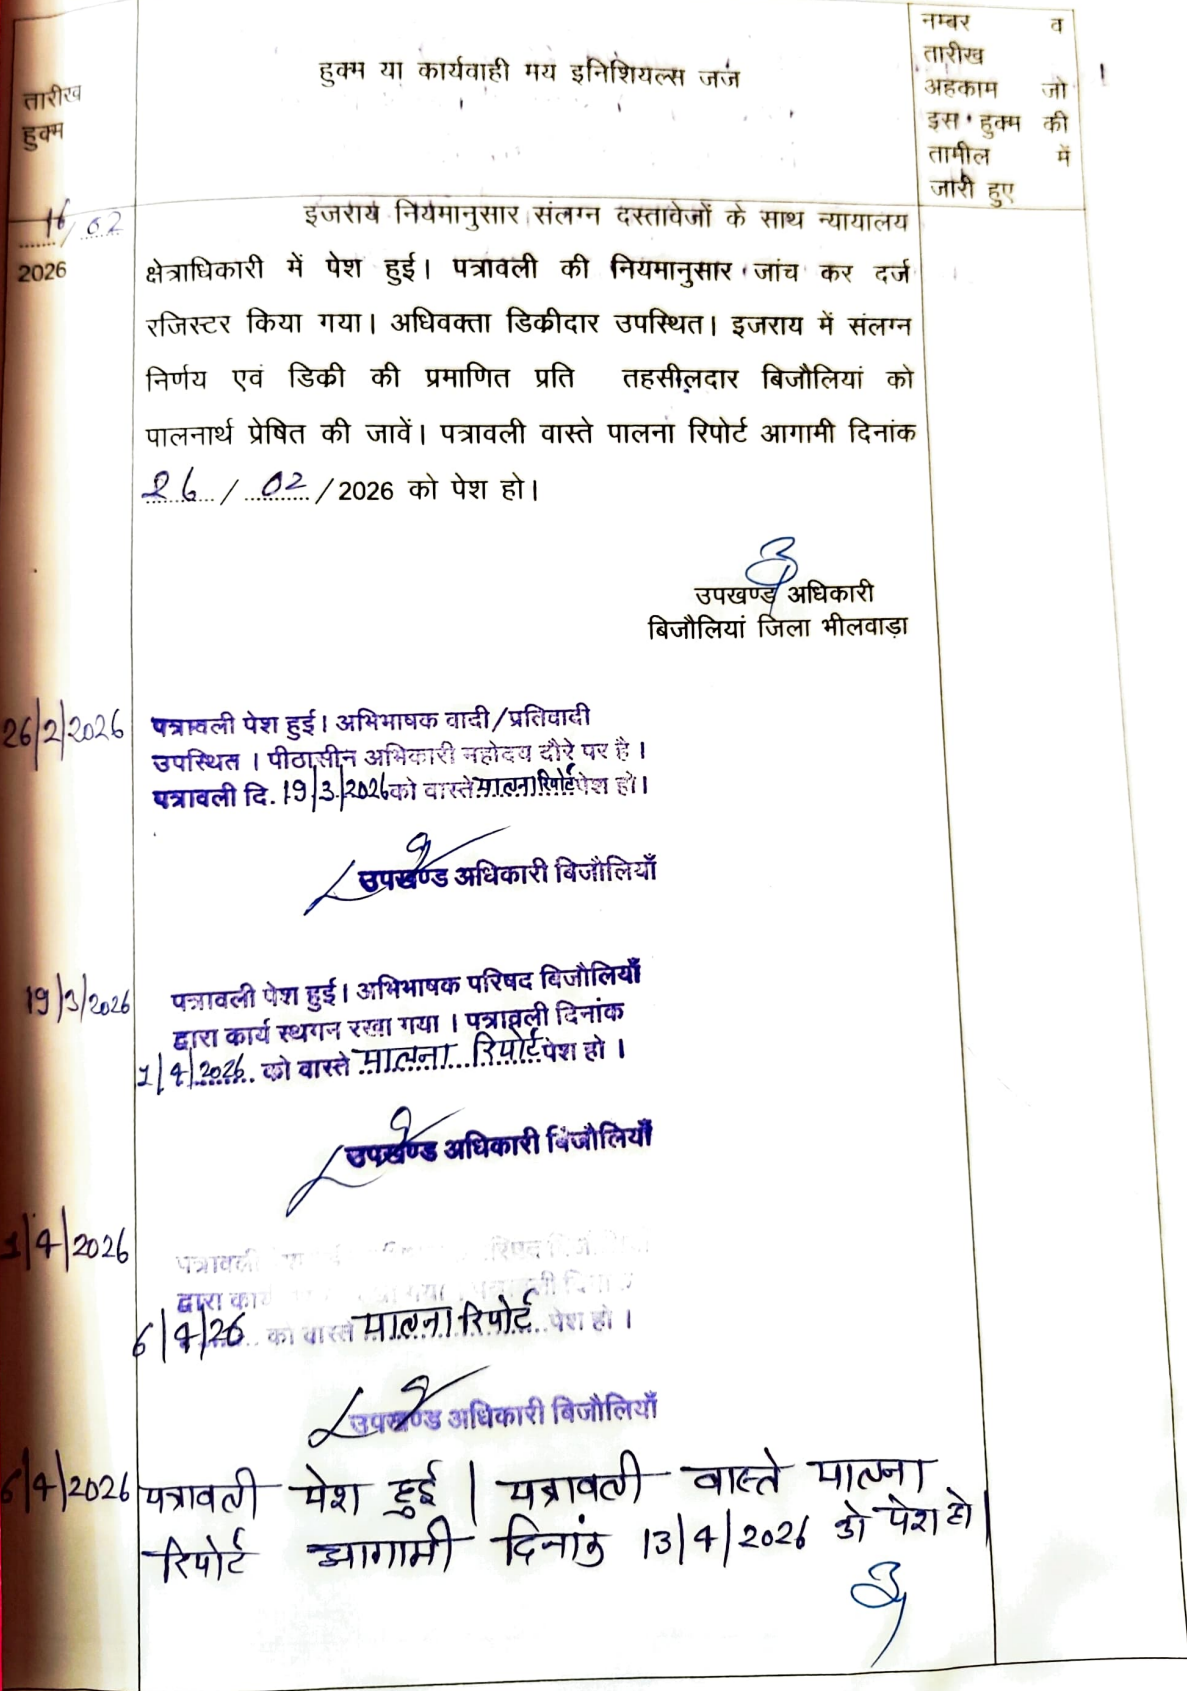 तारीख
हुक्म
हुक्म या कार्यवाही मय इनिशियल्स जज
नम्बर व
तारीख
अहकाम जो
इस हुक्म की
तामील में
जारी हुए
16/02
2026
इजराय नियमानुसार संलग्न दस्तावेजों के साथ न्यायालय
क्षेत्राधिकारी में पेश हुई। पत्रावली की नियमानुसार जांच कर दर्ज
रजिस्टर किया गया। अधिवक्ता डिकीदार उपस्थित। इजराय में संलग्न
निर्णय एवं डिकी की प्रमाणित प्रति तहसीलदार बिजौलियां को
पालनार्थ प्रेषित की जावें। पत्रावली वास्ते पालना रिपोर्ट आगामी दिनांक
26/02/2026 को पेश हो।
उपखण्ड अधिकारी
बिजौलियां जिला भीलवाड़ा
26/2/2026
पत्रावली पेश हुई। अभिभाषक वादी/प्रतिवादी
उपस्थित । पीठासीन अधिकारी महोदय दौरे पर है ।
पत्रावली दि. 19/3/2026 को वास्ते पालना रिपोर्ट पेश हो।
उपखण्ड अधिकारी बिजौलियाँ
19/3/2026
पत्रावली पेश हुई। अभिभाषक परिषद बिजौलियाँ
द्वारा कार्य स्थगन रखा गया । पत्रावली दिनांक
1/4/2026 को वास्ते पालना रिपोर्ट पेश हो ।
उपखण्ड अधिकारी बिजौलियाँ
1/4/2026
पत्रावली
द्वारा कार्य गया
6/4/26 को वास्ते पालना रिपोर्ट पेश हो ।
उपखण्ड अधिकारी बिजौलियाँ
6/4/2026
पत्रावली पेश हुई । पत्रावली वास्ते पालना
रिपोर्ट आगामी दिनांक 13/4/2026 को पेश हो।